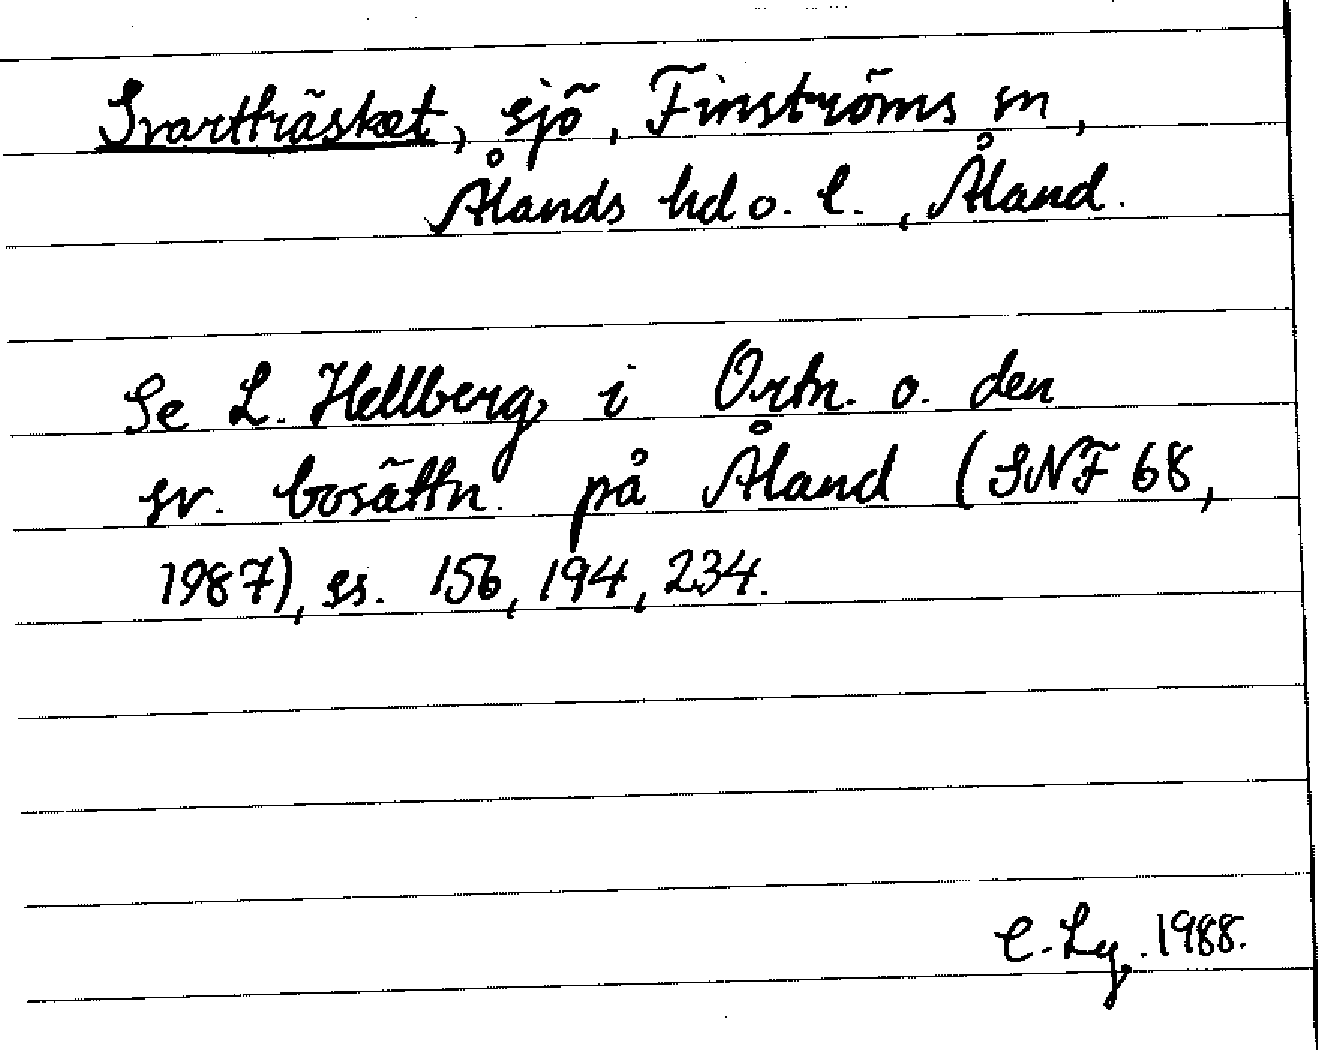 Svartträsket, sjö, Finströms sn,
Ålands hd o. l., Åland.
Se L. Hellberg i Ortn. o. den
sv. bosättn. på Åland (SNF 68,
1987), ss. 156, 194, 234.
C. Lg. 1988.